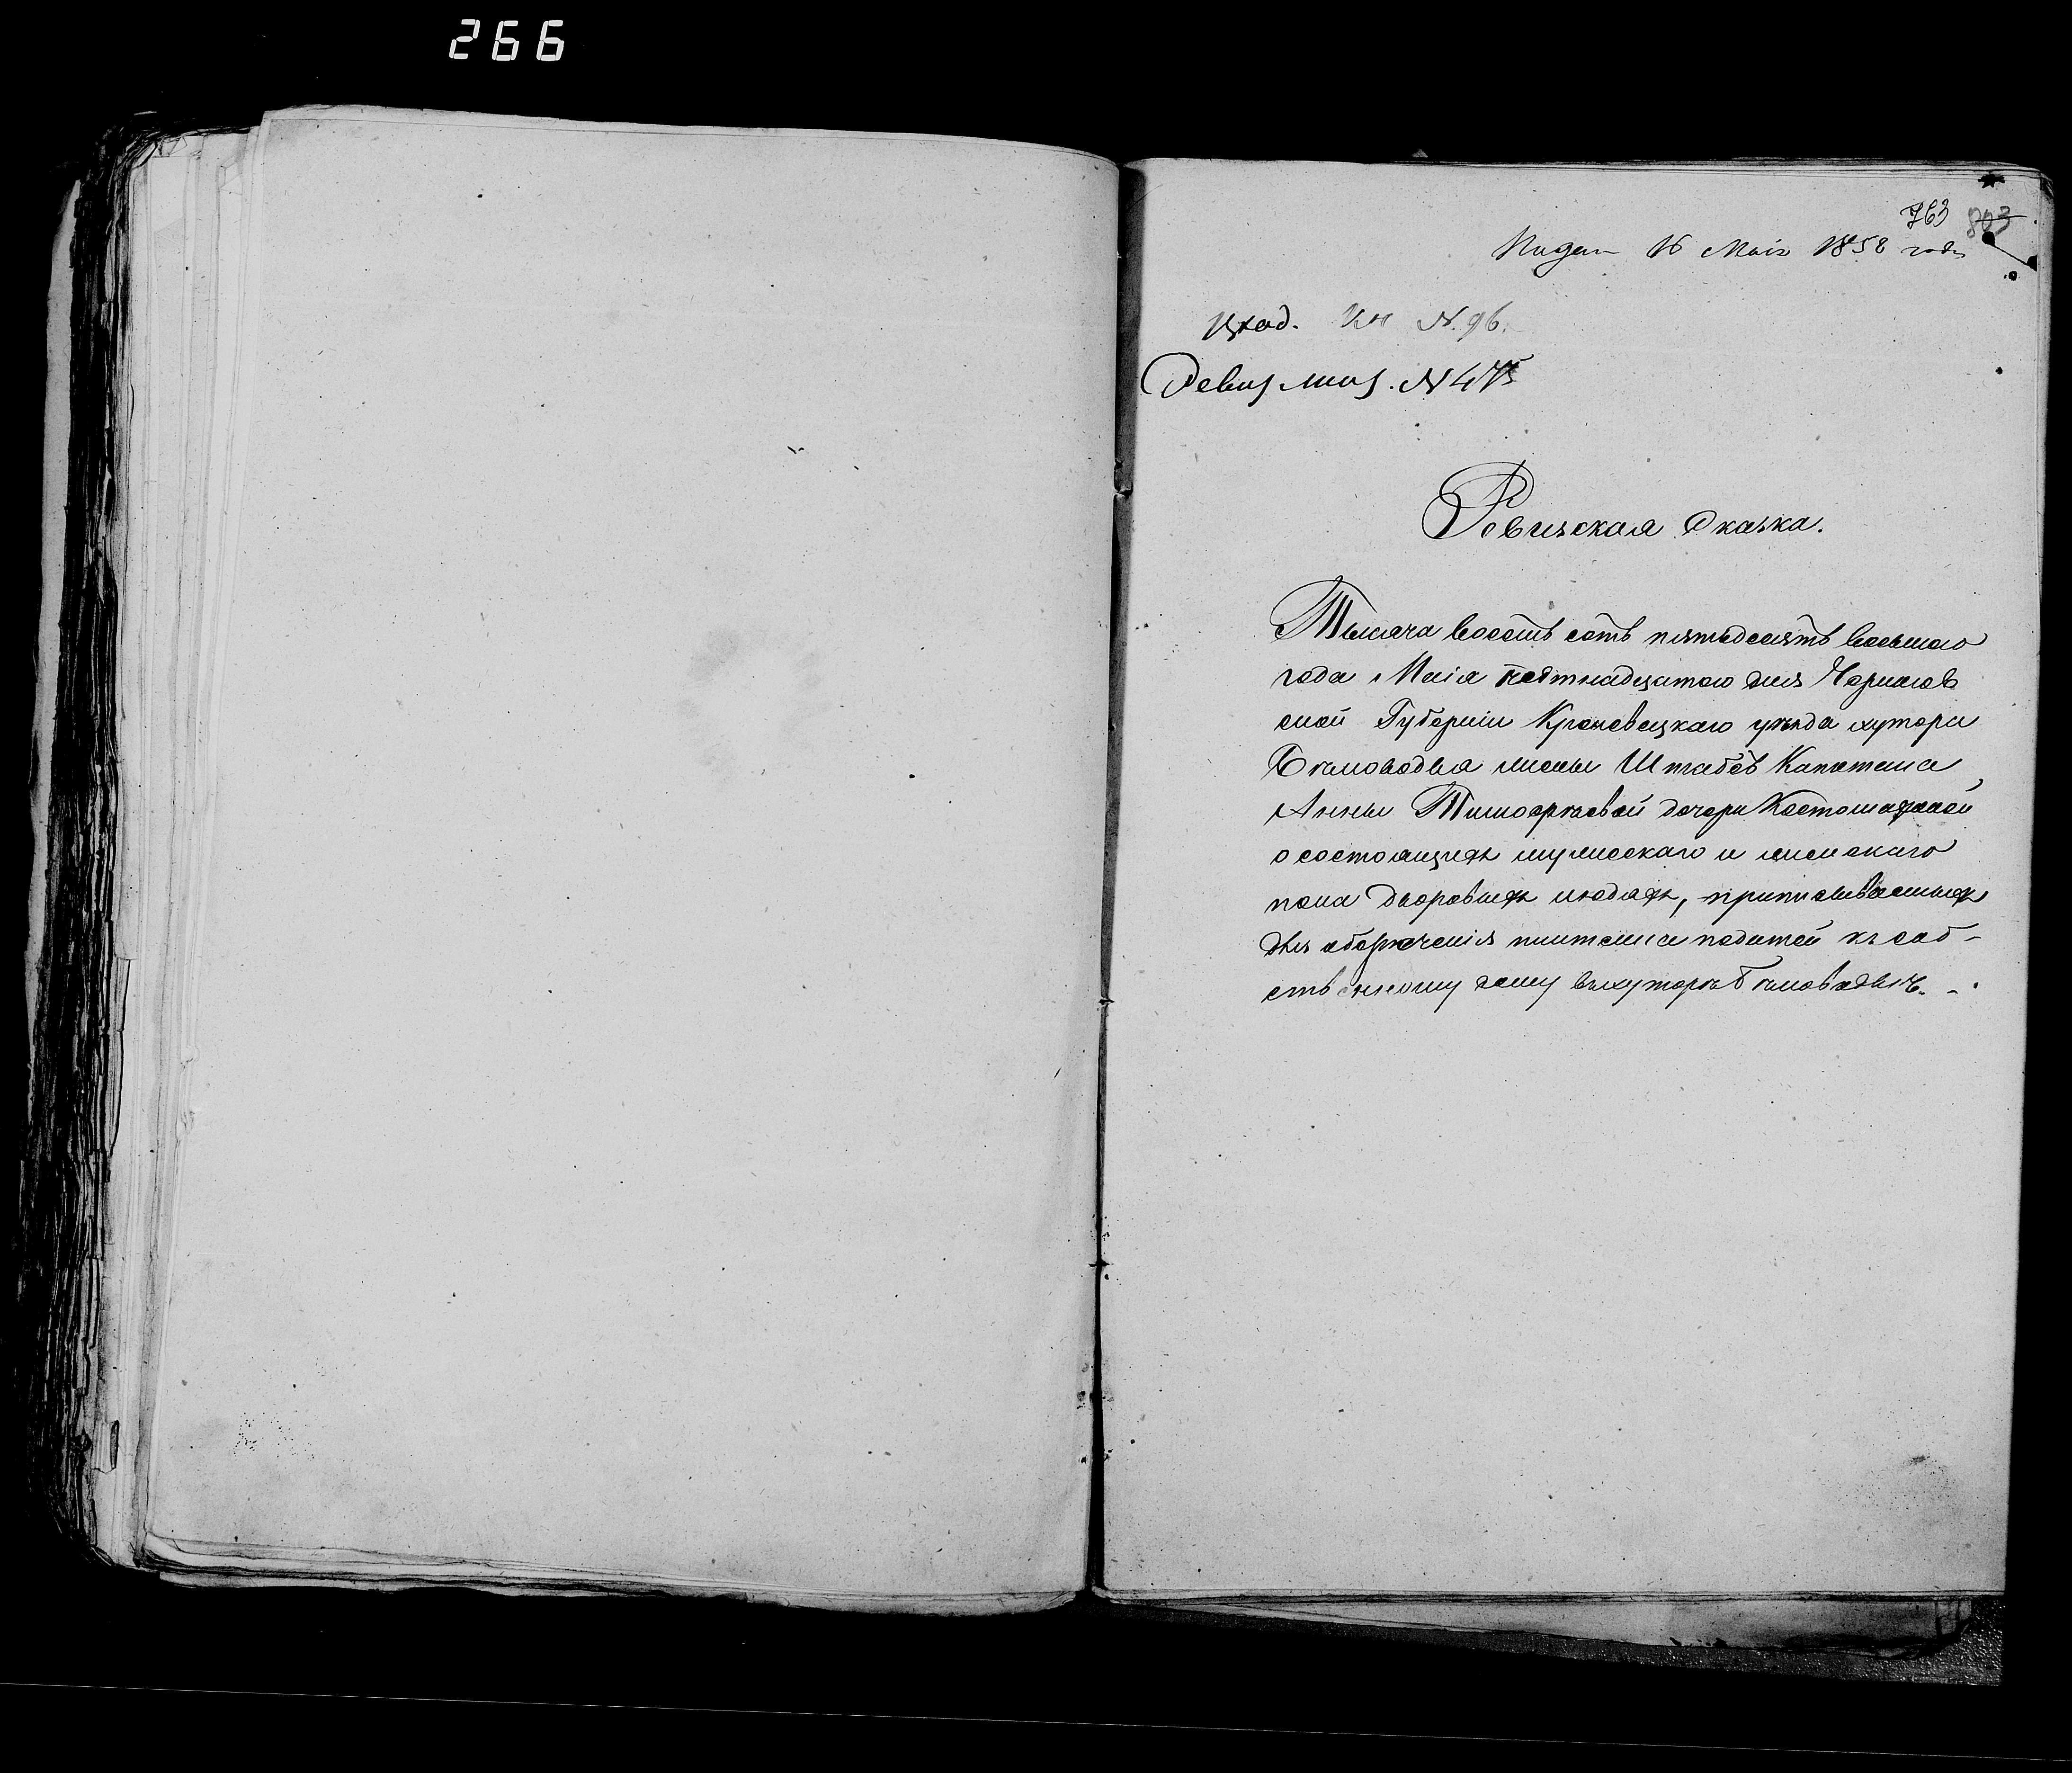 266
763 803
Подан 16 Маія 1858 года
Вход. Кн N. 96.
Ревиз. N 475
Ревизская Сказка.
Тысяча восемь сотъ пятьдесятъ восьмаго
года Маія пятнадцатаго дня Чернигов
ской Губерніи Кролевецкаго уѣзда хутора
Бѣловодья жены Штабсъ Капитана
Анны Тимофѣевой дочери
о состоящихъ мужескаго и женскаго
пола дворовыхъ людяхъ, приписываемыхъ
для обезпеченія платежа податей къ соб-
ственному дому въ хуторѣ Бѣловодьѣ. -